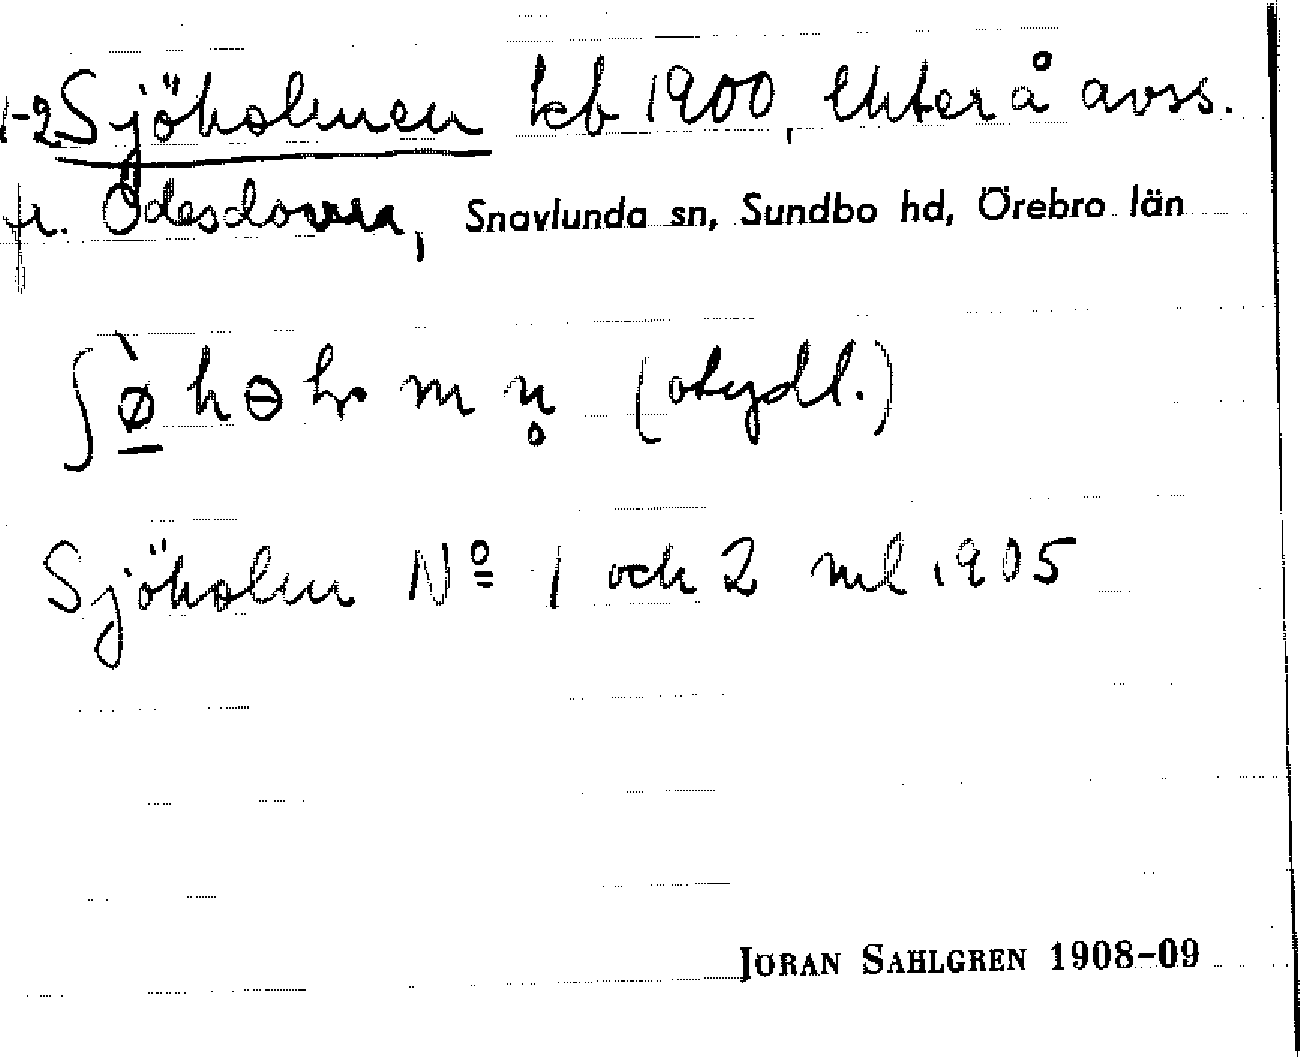 1-2 Sjöholmen kb 1900, Utterå avss.
fr. Ödesdovra, Snavlunda sn, Sundbo hd, Örebro län
(otydl.)
Sjöholm Nº 1 och 2 ml 1905
JÖRAN SAHLGREN 1908-09